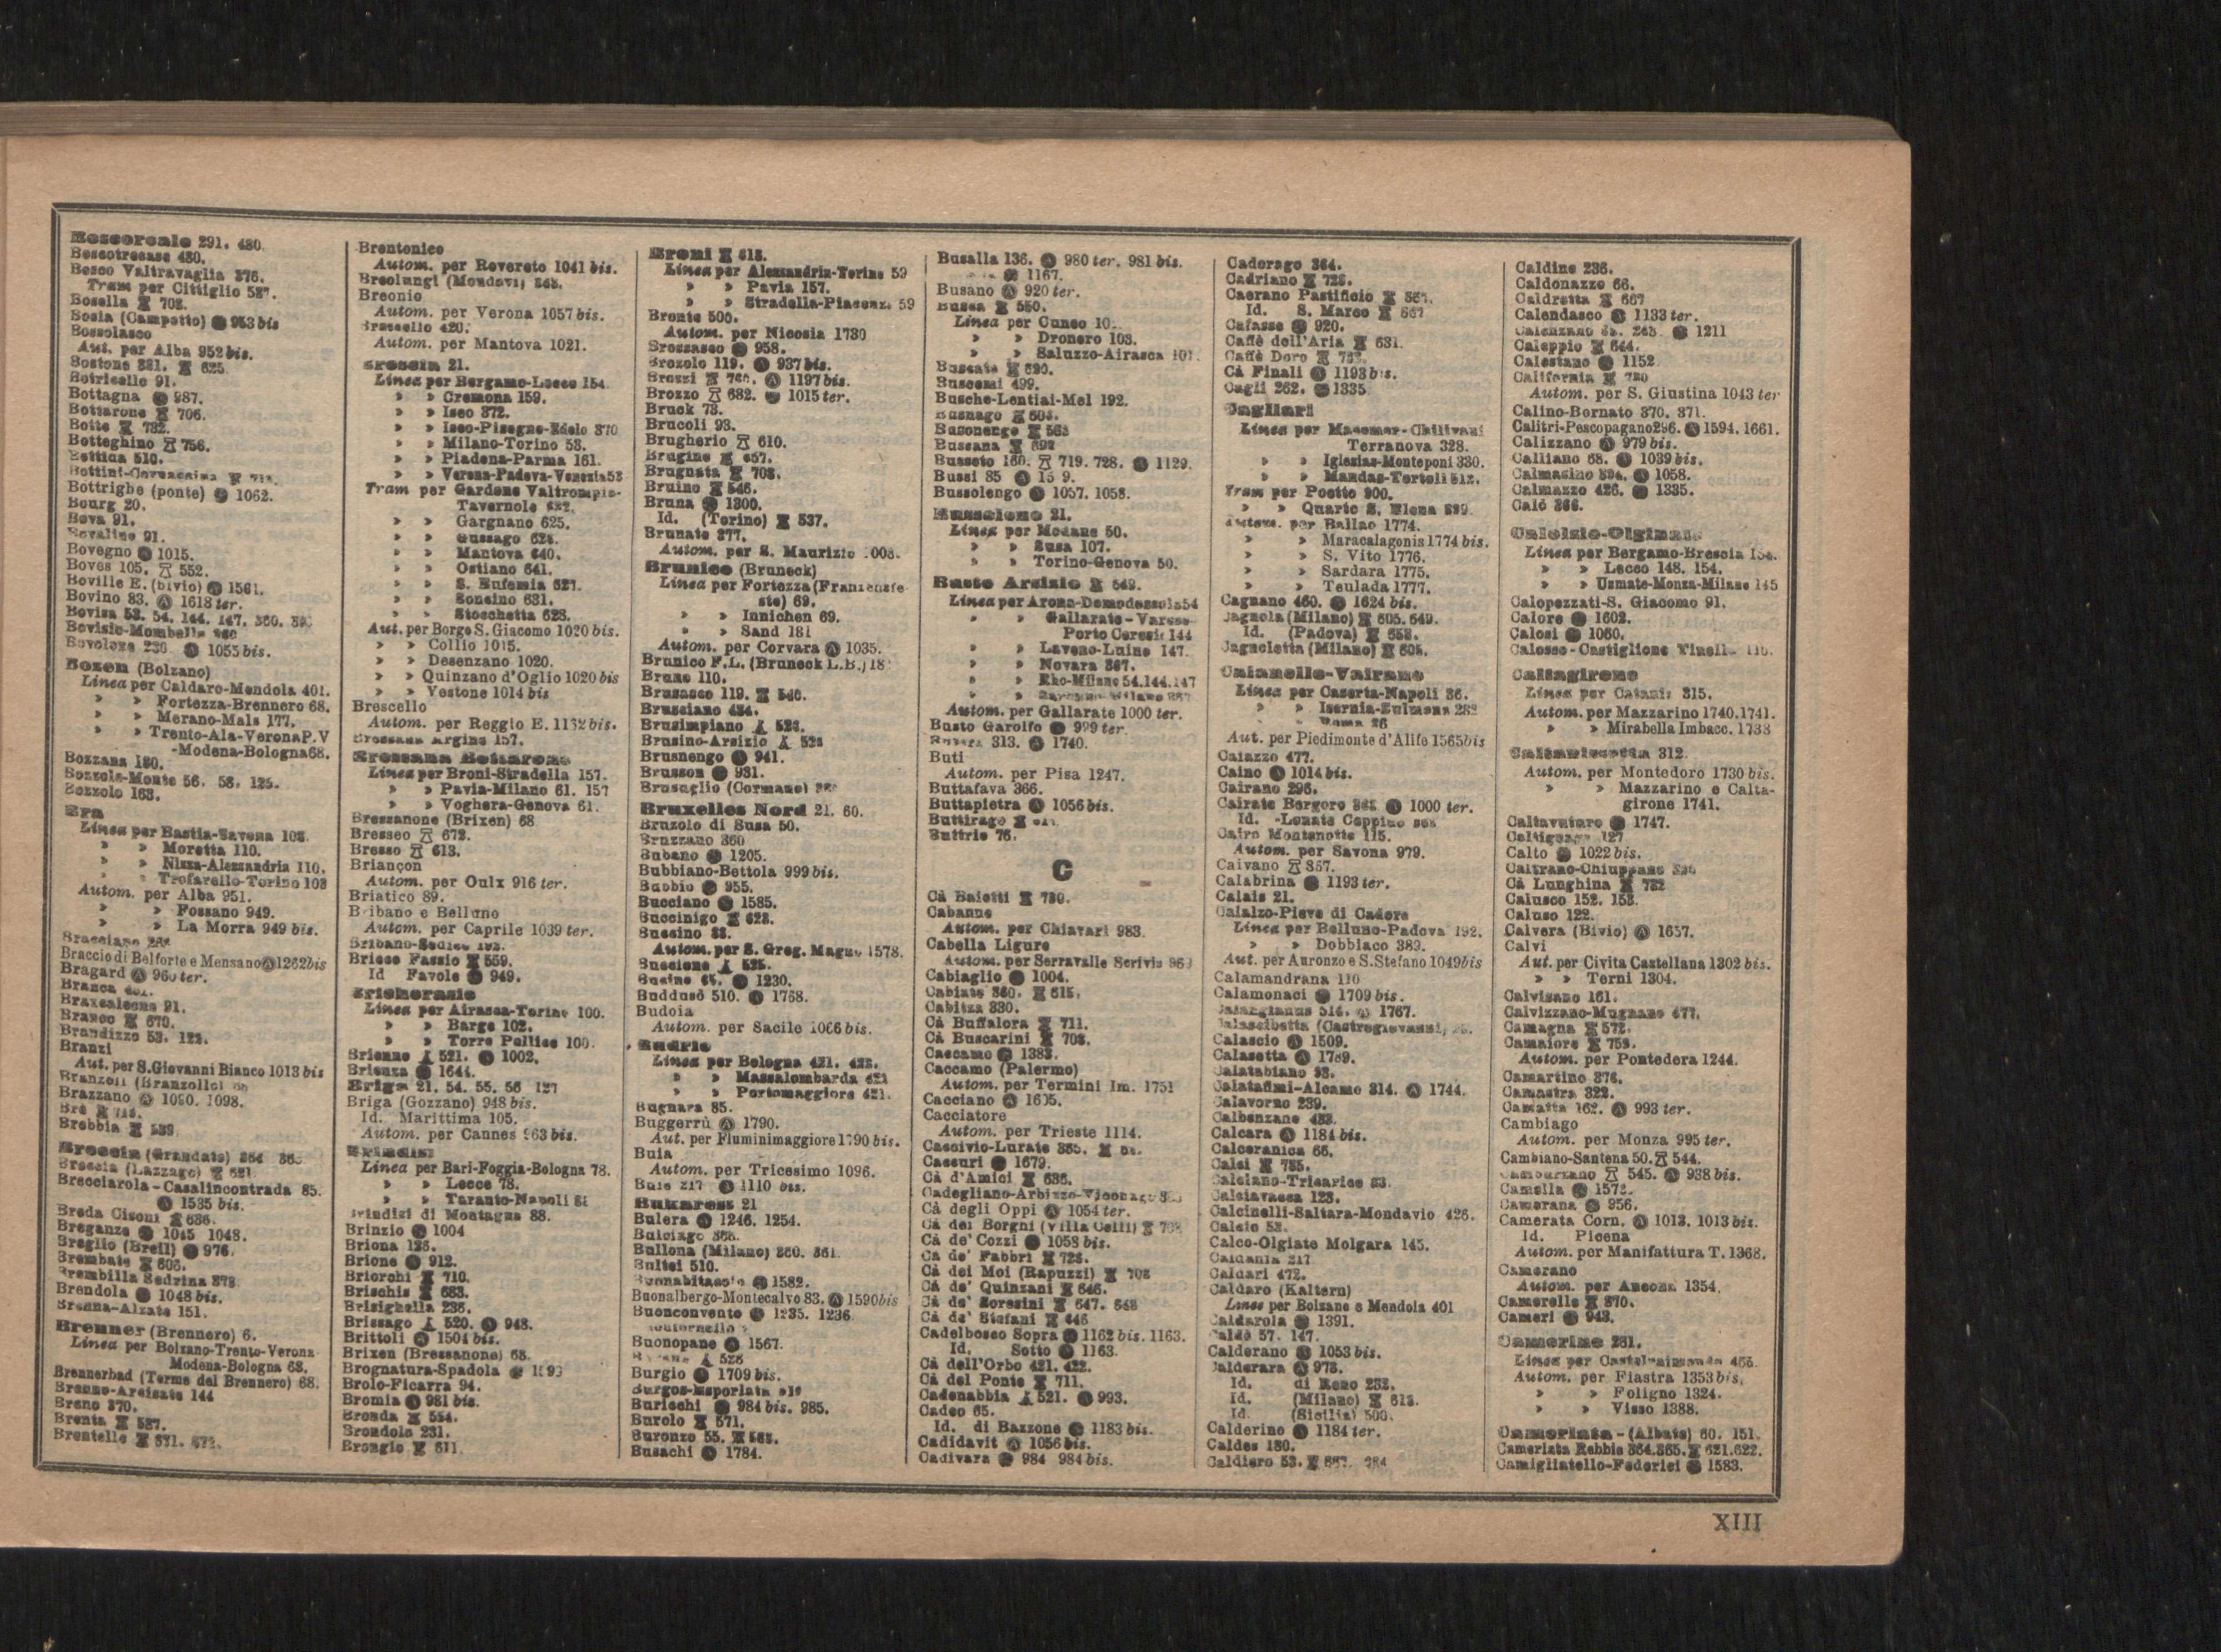 Boscoreale 291. 480.
Boscotrecase 480.
Bosco Valtravaglia 376.
Tram per Cittiglio 587.
Bosella 708.
Bosia (Campetto) 953 bis
Bossolasco
Aut. per Alba 952 bis.
Bostone 381. 625.
Botricello 91.
Bottagna 987.
Bottarone 706.
Botte 782.
Botteghino 756.
Bottida 510.
Bottrighe (ponte) 1062.
Bourg 20.
Bova 91.
Bovalino 91.
Bovegno 1015.
Boves 105. 552.
Boville E. (bivio) 1561.
Bovino 83. 1618 ter.
Bovisa 53. 54. 144. 147. 360.
Bovisio-Mombello
Bovolone 1055 bis.
Bozen (Bolzano)
Linea per Caldaro-Mendola 401.
» » Fortezza-Brennero 68.
» » Merano-Mals 177.
» » Trento-Ala-Verona P.V
-Modena-Bologna 68.
Bozzana 180.
Bozzolo-Monte 56. 58. 125.
Bozzolo 163.
Bra
Linea per Bastia-Savona 108.
» » Moretta 110.
» » Nizza-Alessandria 110.
» » Trofarello-Torino 108
Autom. per Alba 951.
» » Fossano 949.
» » La Morra 949 bis.
Bracciano
Braccio di Belforte e Mensano 1262 bis
Bragard 960 ter.
Branca
Brancaleone 91.
Branco 670.
Brandizzo 53. 122.
Branzi
Aut. per S. Giovanni Bianco 1013 bis
Branzoll (Branzollo) 68
Brazzano 1090. 1098.
Brà
Brebbia 589
Breccia (Grandate) 364
Breccia (Lazzago) 621
Brecciarola-Casalincontrada 85.
1535 bis.
Breda Cisoni 686.
Breganze 1045 1048.
Breglio (Breil) 976.
Brembate 606.
Brembilla Sedrina 378
Brendola 1048 bis.
Brenna-Alzate 151.
Brenner (Brennero) 6.
Linea per Bolzano-Trento-Verona
Modena-Bologna 68.
Brennerbad (Terme del Brennero) 68.
Brenno-Arcisate 144
Breno 370.
Brenta 587.
Brentelle 671. 672.
Brentonico
Autom. per Rovereto 1041 bis.
Breolungi (Mondovì)
Breonio
Autom. per Verona 1057 bis.
Brescello 420.
Autom. per Mantova 1021.
Brescia 21.
Linea per Bergamo-Lecco 154
» » Cremona 159.
» » Iseo 372.
» » Iseo-Pisogne-Edolo 370
» » Milano-Torino 53.
» » Piadena-Parma 161.
» » Verona-Padova-Venezia 53
Tram per Gardone Valtrompia-
Tavernole 622.
» » Gargnano 625.
» » Gussago 624.
» » Mantova 640.
» » Ostiano 641.
» » S. Eufemia 627.
» » Soncino 631.
» » Stocchetta 623.
Aut. per Borgo S. Giacomo 1020 bis.
» » Collio 1015.
» » Desenzano 1020.
» » Quinzano d'Oglio 1020 bis
» » Vestone 1014 bis
Brescello
Autom. per Reggio E. 1162 bis.
Bressana Argine 157.
Bressana Bottarone
Linea per Broni-Stradella 157.
» » Pavia-Milano 61. 157
» » Voghera-Genova 61.
Bressanone (Brixen) 68
Bresseo 672.
Bresso 613.
Briançon
Autom. per Oulx 916 ter.
Briatico 89.
Bribano e Belluno
Autom. per Caprile 1039 ter.
Bribano-Sedico 192.
Bricco Fassio 559.
Id Favole 949.
Bricherasio
Linea per Airasca-Torino 100.
» » Barge 102.
» » Torre Pellice 100.
Brienno 521. 1002.
Brienza 1644.
Briga 21. 54. 55. 56 127
Briga (Gozzano) 948 bis.
Id. Marittima 105.
Autom. per Cannes 963 bis.
Brindisi
Linea per Bari-Foggia-Bologna 78.
» » Lecce 78.
» » Taranto-Napoli 88
Brindisi di Montagna 88.
Brinzio 1004
Briona 126.
Brione 912.
Briorchi 710.
Brischis 683.
Brisighella 236.
Brissago 520. 948.
Brittoli 1504 bis.
Brixen (Bressanone) 68.
Brognatura-Spadola 1690
Brolo-Ficarra 94.
Bromia 981 bis.
Bronda 554.
Brondolo 231.
Brongio 611.
Broni 618.
Linea per Alessandria-Torino 59
» » Pavia 157.
» » Stradella-Piacenza 59
Bronte 500.
Autom. per Nicosia 1730
Brossasco 958.
Brozolo 119. 937 bis.
Brozzi 766. 1197 bis.
Brozzo 682. 1015 ter.
Bruck 73.
Brucoli 93.
Brugherio 610.
Brugine 657.
Brugnata 708.
Bruino 546.
Bruna 1300.
Id. (Torino) 537.
Brunate 377.
Autom. per S. Maurizio 1003.
Brunico (Bruneck)
Linea per Fortezza (Franzenste-
ste) 69.
» » Innichen 69.
» » Sand 181
Autom. per Corvara 1035.
Brunico F.L. (Bruneck L.B.) 18
Bruno 110.
Brusasco 119. 540.
Brusciano 484.
Brusimpiano 526.
Brusino-Arsizio 526
Brusnengo 941.
Brusson 931.
Brusuglio (Cormano)
Bruxelles Nord 21. 60.
Bruzolo di Susa 50.
Bruzzano 360
Bubano 1205.
Bubbiano-Bettola 999 bis.
Bubbio 955.
Bucciano 1585.
Buccinigo 623.
Buccino 88.
Autom. per S. Greg. Magno 1578.
Buccione 525.
Bucine 65. 1230.
Buddusò 510. 1768.
Budoia
Autom. per Sacile 1066 bis.
Budrio
Linea per Bologna 421. 423.
» » Massalombarda 421
» » Portomaggiore 421.
Bugnara 85.
Buggerrù 1790.
Aut. per Fluminimaggiore 1790 bis.
Buia
Autom. per Tricesimo 1096.
Buie 217 1110 bis.
Bukarest 21
Bulera 1246. 1254.
Bulciago 368.
Bullona (Milano) 360. 361.
Bultei 510.
Buonabitacolo 1582.
Buonalbergo-Montecalvo 83. 1590 bis
Buonconvento 1235. 1236.
Buonopane 1567.
526
Burgio 1709 bis.
Burgos-Esporlatu 510
Buriechi 984 bis. 985.
Burolo 571.
Buronzo 55. 565.
Busachi 1784.
Busalla 136. 980 ter. 981 bis.
1167.
Busano 920 ter.
Busca 550.
Linea per Cuneo 10.
» » Dronero 103.
» » Saluzzo-Airasca 101.
Buscate 620.
Buscemi 499.
Busche-Lentiai-Mel 192.
Busnago 604.
Busonengo 563
Bussana 692
Busseto 160. 719. 728. 1129.
Bussi 85
Bussolengo 1057. 1058.
Bussoleno 21.
Linea per Modane 50.
» » Susa 107.
» » Torino-Genova 50.
Busto Arsizio 649.
Linea per Arona-Domodossola 54
» » Gallarate-Varese
Porto Ceresio 144
» » Laveno-Luino 147.
» » Novara 367.
» » Rho-Milano 54. 144. 147
» » Saronno-Milano 367
Autom. per Gallarate 1000 ter.
Busto Garolfo 999 ter.
Butera 313. 1740.
Buti
Autom. per Pisa 1247.
Buttafava 366.
Buttapietra 1056 bis.
Buttirago
Buttrio 76.
C
Cà Baietti 780.
Cabanne
Autom. per Chiavari 983.
Cabella Ligure
Autom. per Serravalle Scrivia 969
Cabiaglio 1004.
Cabiate 360. 615.
Cabitza 330.
Cà Buffalora 711.
Cà Buscarini 708.
Caccamo 1383.
Caccamo (Palermo)
Autom. per Termini Im. 1751
Cacciano 1605.
Cacciatore
Autom. per Trieste 1114.
Caccivio-Lurate 365.
Caccuri 1679.
Cà d'Amici 686.
Cadegliano-Arbizzo-Viconago
Cà degli Oppi 1054 ter.
Cà dei Borgni (Villa Celli)
Cà de' Cozzi 1058 bis.
Cà de' Fabbri 728.
Cà dei Moi (Rapuzzi) 708
Cà de' Quinzani 646.
Cà de' Soresini 647. 648
Cà de' Stefani 646
Cadelbosco Sopra 1162 bis. 1163.
Id. Sotto 1163.
Cà dell'Orbo 421. 422.
Cà del Ponte 711.
Cadenabbia 521. 993.
Cadeo 65.
Id. di Bazzone 1183 bis.
Cadidavit 1056 bis.
Cadivara 984 984 bis.
Cadorago 364.
Cadriano 728.
Caerano Pastificio 667.
Id. S. Marco 667
Cafasse 920.
Caffè dell'Aria 631.
Caffè Doro 782.
Cà Finali 1193 bis.
Cagli 262. 1335
Cagliari
Linea per Macomer-Chilivani
Terranova 328.
» » Iglesias-Monteponi 330.
» » Mandas-Tortolì 512.
Tram per Poetto 900.
» » Quarto S. Elena 899.
Autom. per Ballao 1774.
» » Maracalagonis 1774 bis.
» » S. Vito 1776.
» » Sardara 1775.
» » Teulada 1777.
Cagnano 460. 1624 bis.
Cagnola (Milano) 605. 649.
Id. (Padova) 658.
Cagnoletta (Milano) 605.
Caianello-Vairano
Linea per Caserta-Napoli 86.
» » Isernia-Sulmona 282
Roma 86
Aut. per Piedimonte d'Alife 1565 bis
Caiazzo 477.
Caino 1014 bis.
Cairano 296.
Cairate Bergoro 368 1000 ter.
Id. -Lonate Ceppino 368
Cairo Montenotte 115.
Autom. per Savona 979.
Caivano 857.
Calabrina 1193 ter.
Calais 21.
Calalzo-Pieve di Cadore
Linea per Belluno-Padova 192.
» » Dobbiaco 389.
Aut. per Auronzo e S. Stefano 1049 bis
Calamandrana 110
Calamonaci 1709 bis.
Calangianus 514. 1767.
Calascibetta (Castrogiovanni)
Calascio 1509.
Calasetta 1789.
Calatabiano 93.
Calatafimi-Alcamo 314. 1744.
Calavorno 239.
Calbenzano 483.
Calcara 1184 bis.
Calceranica 66.
Calci 785.
Calciano-Tricarico 83.
Calciavacca 123.
Calcinelli-Saltara-Mondavio 426.
Calcio 53.
Calco-Olgiate Molgara 145.
Caldania 217
Caldari 472.
Caldaro (Kaltern)
Linea per Bolzano e Mendola 401
Caldarola 1391.
Caldè 57. 147.
Calderano 1053 bis.
Calderara 973.
Id. di Reno 232.
Id. (Milano) 613.
Id (Sicilia) 500.
Calderino 1184 ter.
Caldes 180.
Caldiero 53.
Caldine 236.
Caldonazzo 66.
Caldretta 667
Calendasco 1133 ter.
Calenzano 1211
Caleppio 644.
Calestano 1152
California 780
Autom. per S. Giustina 1043 ter
Calino-Bornato 370. 371.
Calitri-Pescopagano 296. 1594. 1661.
Calizzano 979 bis.
Calliano 68. 1039 bis.
Calmasino 394. 1058.
Calmazzo 426. 1335.
Calò 366.
Calolzio-Olginate
Linea per Bergamo-Brescia 154.
» » Lecco 148. 154.
» » Usmate-Monza-Milano 145
Calopezzati-S. Giacomo 91.
Calore 1602.
Calosi 1060.
Calosso-Castiglione Tinella 110.
Caltagirone
Linea per Catania 315.
Autom. per Mazzarino 1740. 1741.
» » Mirabella Imbacc. 1738
Caltanissetta 312.
Autom. per Montedoro 1730 bis.
» » Mazzarino e Calta-
girone 1741.
Caltavuturo 1747.
Caltignaga 127
Calto 1022 bis.
Caltrano-Chiuppano 396
Cà Lunghina 732
Calusco 152. 153.
Caluso 122.
Calvera (Bivio) 1657.
Calvi
Aut. per Civita Castellana 1302 bis.
» » Terni 1304.
Calvisano 161.
Calvizzano-Mugnano 477.
Camagna 572.
Camaiore 759.
Autom. per Pontedera 1244.
Camartino 376.
Camastra 322.
Camatta 162. 993 ter.
Cambiago
Autom. per Monza 995 ter.
Cambiano-Santena 50. 544.
Camburzano 545. 938 bis.
Camella 1572.
Camerana 956.
Camerata Corn. 1013. 1013 bis.
Id. Picena
Autom. per Manifattura T. 1368.
Camerano
Autom. per Ancona 1354.
Camerelle 870.
Cameri 943.
Camerino 261.
Linea per Castelraimondo 466.
Autom. per Fiastra 1353 bis.
» » Foligno 1324.
» » Visso 1388.
Camerlata - (Albate) 60. 151.
Camerlata Rebbio 364. 365. 621. 622.
Camigliatello-Federici 1583.
XIII